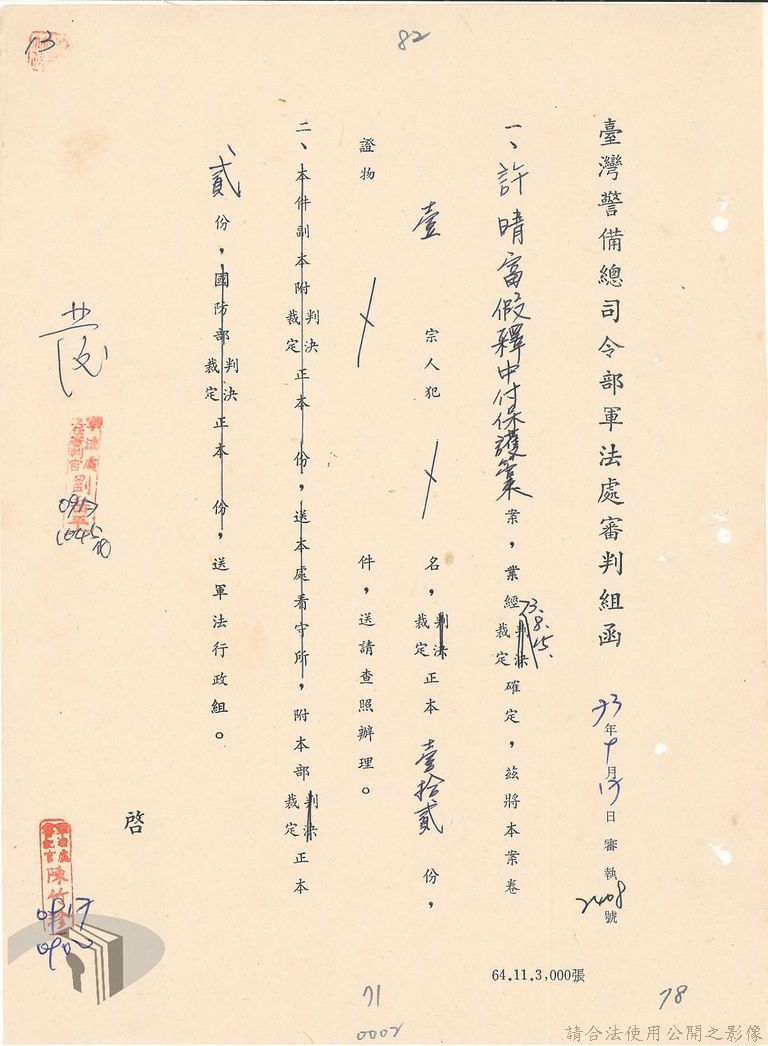 13
82
臺灣警備總司令部軍法處審判組函
73年9月15日審執2408號
一、許晴富假釋中付保護管束案，業經判決裁定73.8.15.確定，茲將本案卷
壹宗人犯〤名，判決裁定正本壹拾貳份，
證物〤件，送請查照辦理。
二、本件副本附判決裁定正本份，送本處看守所，附本部判決裁定正本
貳份，國防部判決裁定正本份，送軍法行政組。
啓
軍法處
審判官
劉
平
0917
1045
軍法處
書記官
陳竹
0917
0900
64.11.3,000張
71
78
0002
請合法使用公開之影像